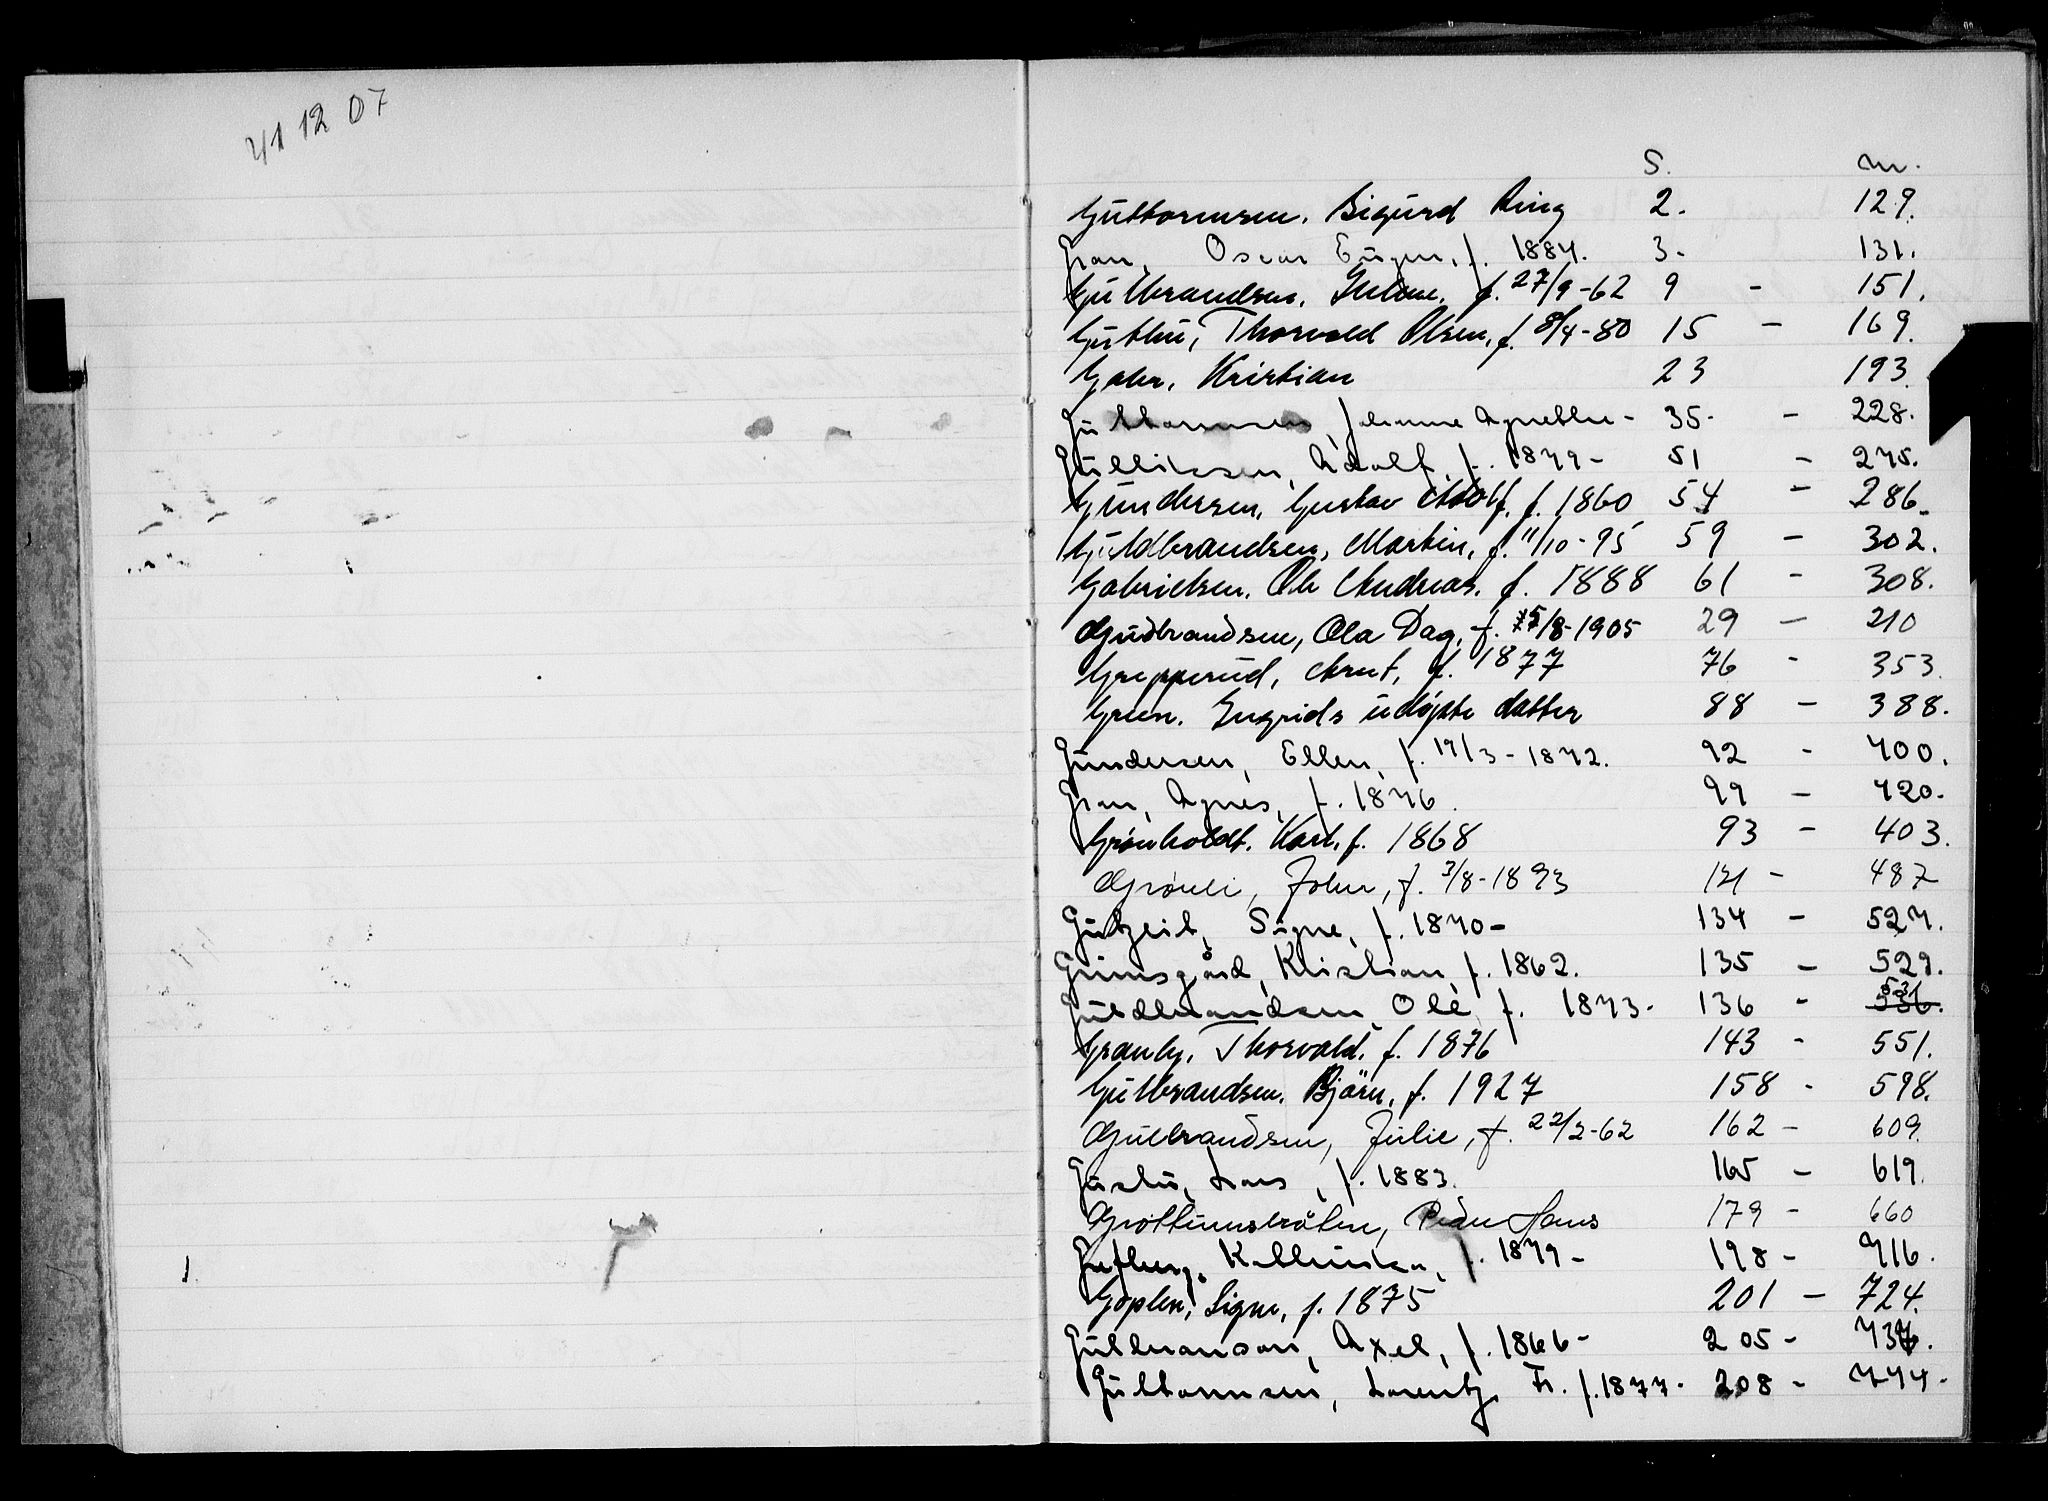 41 12 07
1.
S. m.
Guttormsen. Sigurd Ring 2. 129.
Gran, Oscar Eugen, f. 1884. 3. 131.
Gulbrandsen. f. 27/9-62 9 - 151.
Guthu, Thorvald Olsen, f. 8/4-80 15 - 169.
Kristian 23 193.
Guttormsen Johanne Agnethe - 35. - 228.
Gulliksen, Adolf, f. 1879 - 51 - 275.
Gundersen, Gustav Adolf, f. 1860 54 - 286.
Guldbrandsen, Martin, f. 11/10-95 59 - 302.
Gabrielsen. Ole Andreas. f. 1888 61 - 308.
Gudbrandsen, Ola Dag, f. /8-1905 29 - 210
Grepperud, Arnt, f. 1877 76 - 353.
Green. Ingrids udøpte datter 88 - 388.
Gundersen, Ellen, f. 19/3-1872. 92 - 400.
Gran, Agnes, f. 1876. 99 - 420.
Grønholdt. Karl, f. 1868 93 - 403.
Grønli, John, f. 3/8-1893 121 - 487
Gutzeit, Signe, f. 1870 - 134 - 527.
Grimsgård, Kristian, f. 1862. 135 - 529.
Guldbrandsen, Ole f. 1873. 136 - 531
Granly, Thorvald, f. 1876 143 - 551.
Gulbrandsen. Bjørn, f. 1927 158 - 598.
Gulbrandsen, Julie, f. 22/2-62 162 - 609.
Lars, f. 1883. 165 - 619.
Grøttumsbråten, Peder Hans 179 - 660
Kathinka, f. 1879 - 198 - 716.
Goplen, Signe, f. 1875 201 - 724.
Axel, f. 1866 - 205 -
Guttormsen, Lorentz Fr. f. 1877. 208 - 744.